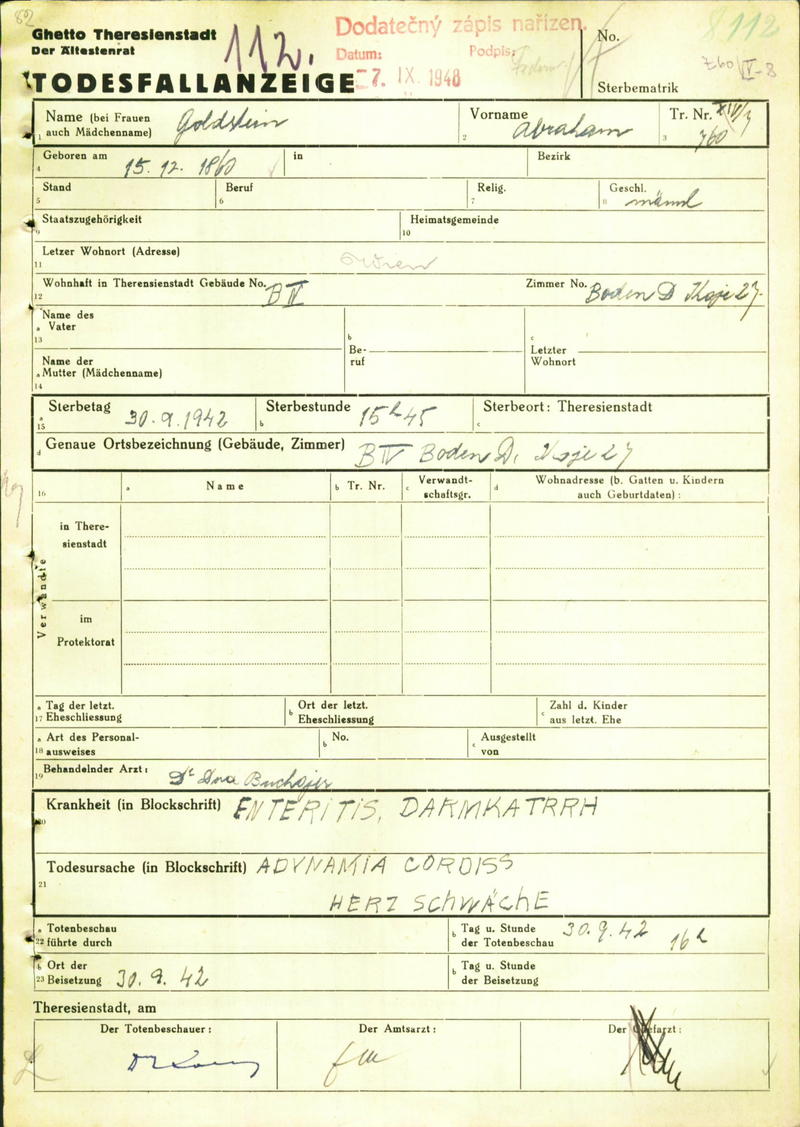 82
Ghetto Theresienstadt
Der Ältestenrat
112.
Dodatečný zápis nařízen.
Datum: 7. IX. 1948 Podpis:
No.
8112
760/IV-8
TODESFALLANZEIGE
Sterbematrik
Name (bei Frauen auch Mädchenname) Goldstein
1
Vorname Abraham
2
Tr. Nr. XIV/7
3 760
Geboren am 15. 12. 1860
4
in
Bezirk
Stand
5
Beruf
6
Relig.
7
Geschl.
8 männl
Staatszugehörigkeit
9
Heimatsgemeinde
10
Letzer Wohnort (Adresse)
11
Wien
Wohnhaft in Theresienstadt Gebäude No. B IV
12
Zimmer No. Boden D Koje 27
Name des
a Vater
13
Name der
a Mutter (Mädchenname)
14
b
Be-
ruf
c
Letzter
Wohnort
a Sterbetag 30.9.1942
15
b Sterbestunde 15h45
c Sterbeort: Theresienstadt
d Genaue Ortsbezeichnung (Gebäude, Zimmer) B IV Boden D, Koje 27
16
a Name
b Tr. Nr.
c Verwandt-
schaftsgr.
d Wohnadresse (b. Gatten u. Kindern
auch Geburtdaten) :
Verwandte
in There-
sienstadt
im
Protektorat
a Tag der letzt.
17 Eheschliessung
b Ort der letzt.
Eheschliessung
c Zahl d. Kinder
aus letzt. Ehe
a Art des Personal-
18 ausweises
b No.
c Ausgestellt
von
19 Behandelnder Arzt :
Krankheit (in Blockschrift) ENTERITIS, DARMKATRRH
20
Todesursache (in Blockschrift) ADYNAMIA CORDISS
21
HERZ SCHWÄCHE
a Totenbeschau
22 führte durch
b Tag u. Stunde
der Totenbeschau 30.9.42 16h
a Ort der
23 Beisetzung 30. 9. 42
b Tag u. Stunde
der Beisetzung
Theresienstadt, am
Der Totenbeschauer :
Der Amtsarzt :
Der Chefarzt :